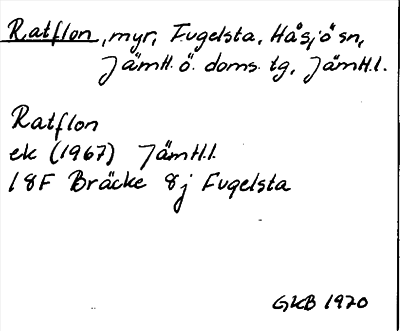 Ratflon, myr, Fugelsta, Håsjö sn,
Jämtl. ö. doms. tg, Jämtl.l.
Ratflon
ek (1967) Jämtl.l.
18F Bräcke 8j Fugelsta
GKB 1970